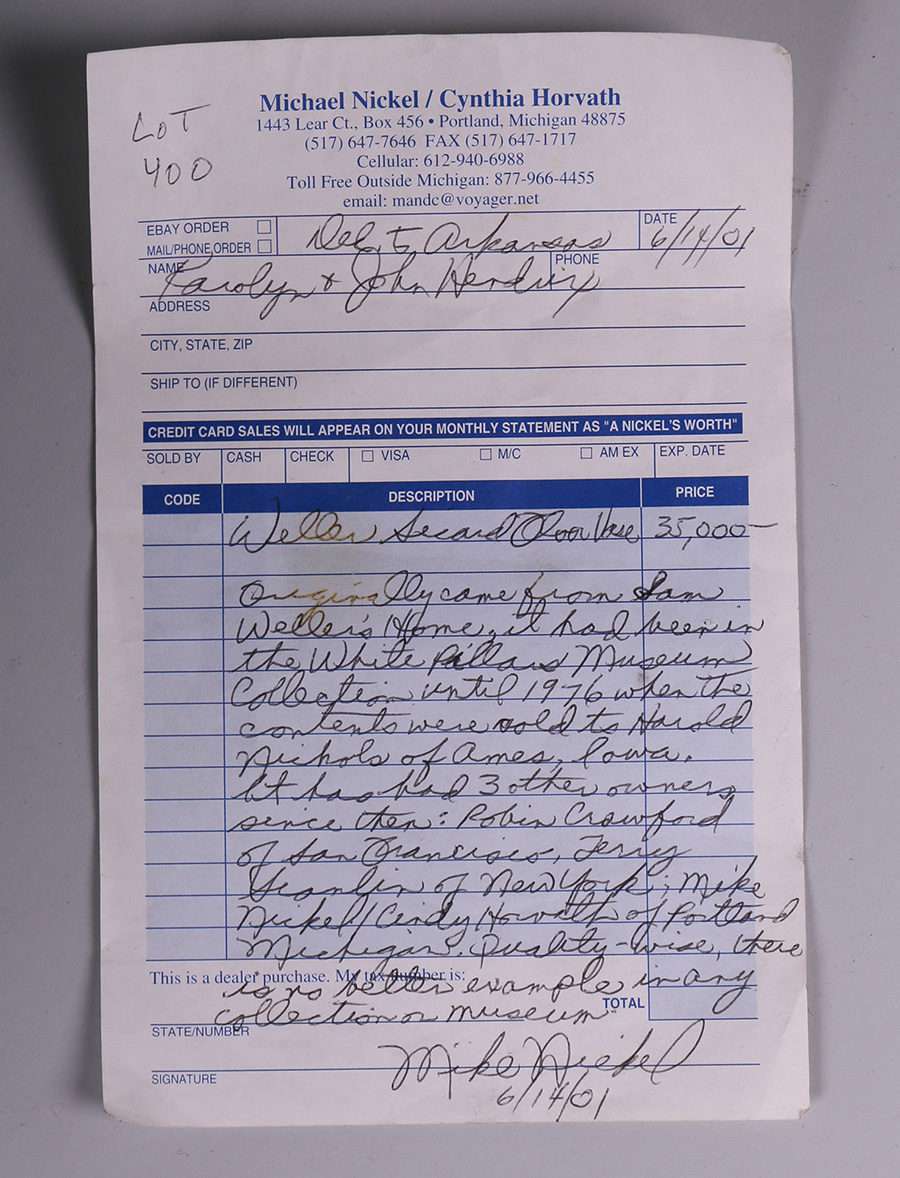 LOT
400
Michael Nickel / Cynthia Horvath
1443 Lear Ct., Box 456 • Portland, Michigan 48875
(517) 647-7646 FAX (517) 647-1717
Cellular: 612-940-6988
Toll Free Outside Michigan: 877-966-4455
email: mandc@voyager.net
EBAY ORDER
MAIL/PHONE ORDER
Del to Arkansas
DATE
6/14/01
NAME
Karolyn & John Hendrix
PHONE
ADDRESS
CITY, STATE, ZIP
SHIP TO (IF DIFFERENT)
CREDIT CARD SALES WILL APPEAR ON YOUR MONTHLY STATEMENT AS "A NICKEL'S WORTH"
SOLD BY CASH CHECK VISA M/C AM EX EXP. DATE
CODE DESCRIPTION PRICE
Weller Secard Floor Vase 35,000—
Originally came from Sam
Weller's Home, it had been in
the White Pillars Museum
Collection until 1976 when the
contents were sold to Harold
Nichols of Ames, Iowa.
It has had 3 other owners
since then: Robin Crawford
of San Francisco, Terry
of New York; Mike
Nickel/Cindy Horvath of Portland
Michigan. Quality-wise, there
This is a dealer purchase. My tax number is:
is no better example in any
TOTAL
collection or museum
STATE/NUMBER
Mike Nickel
SIGNATURE
6/14/01